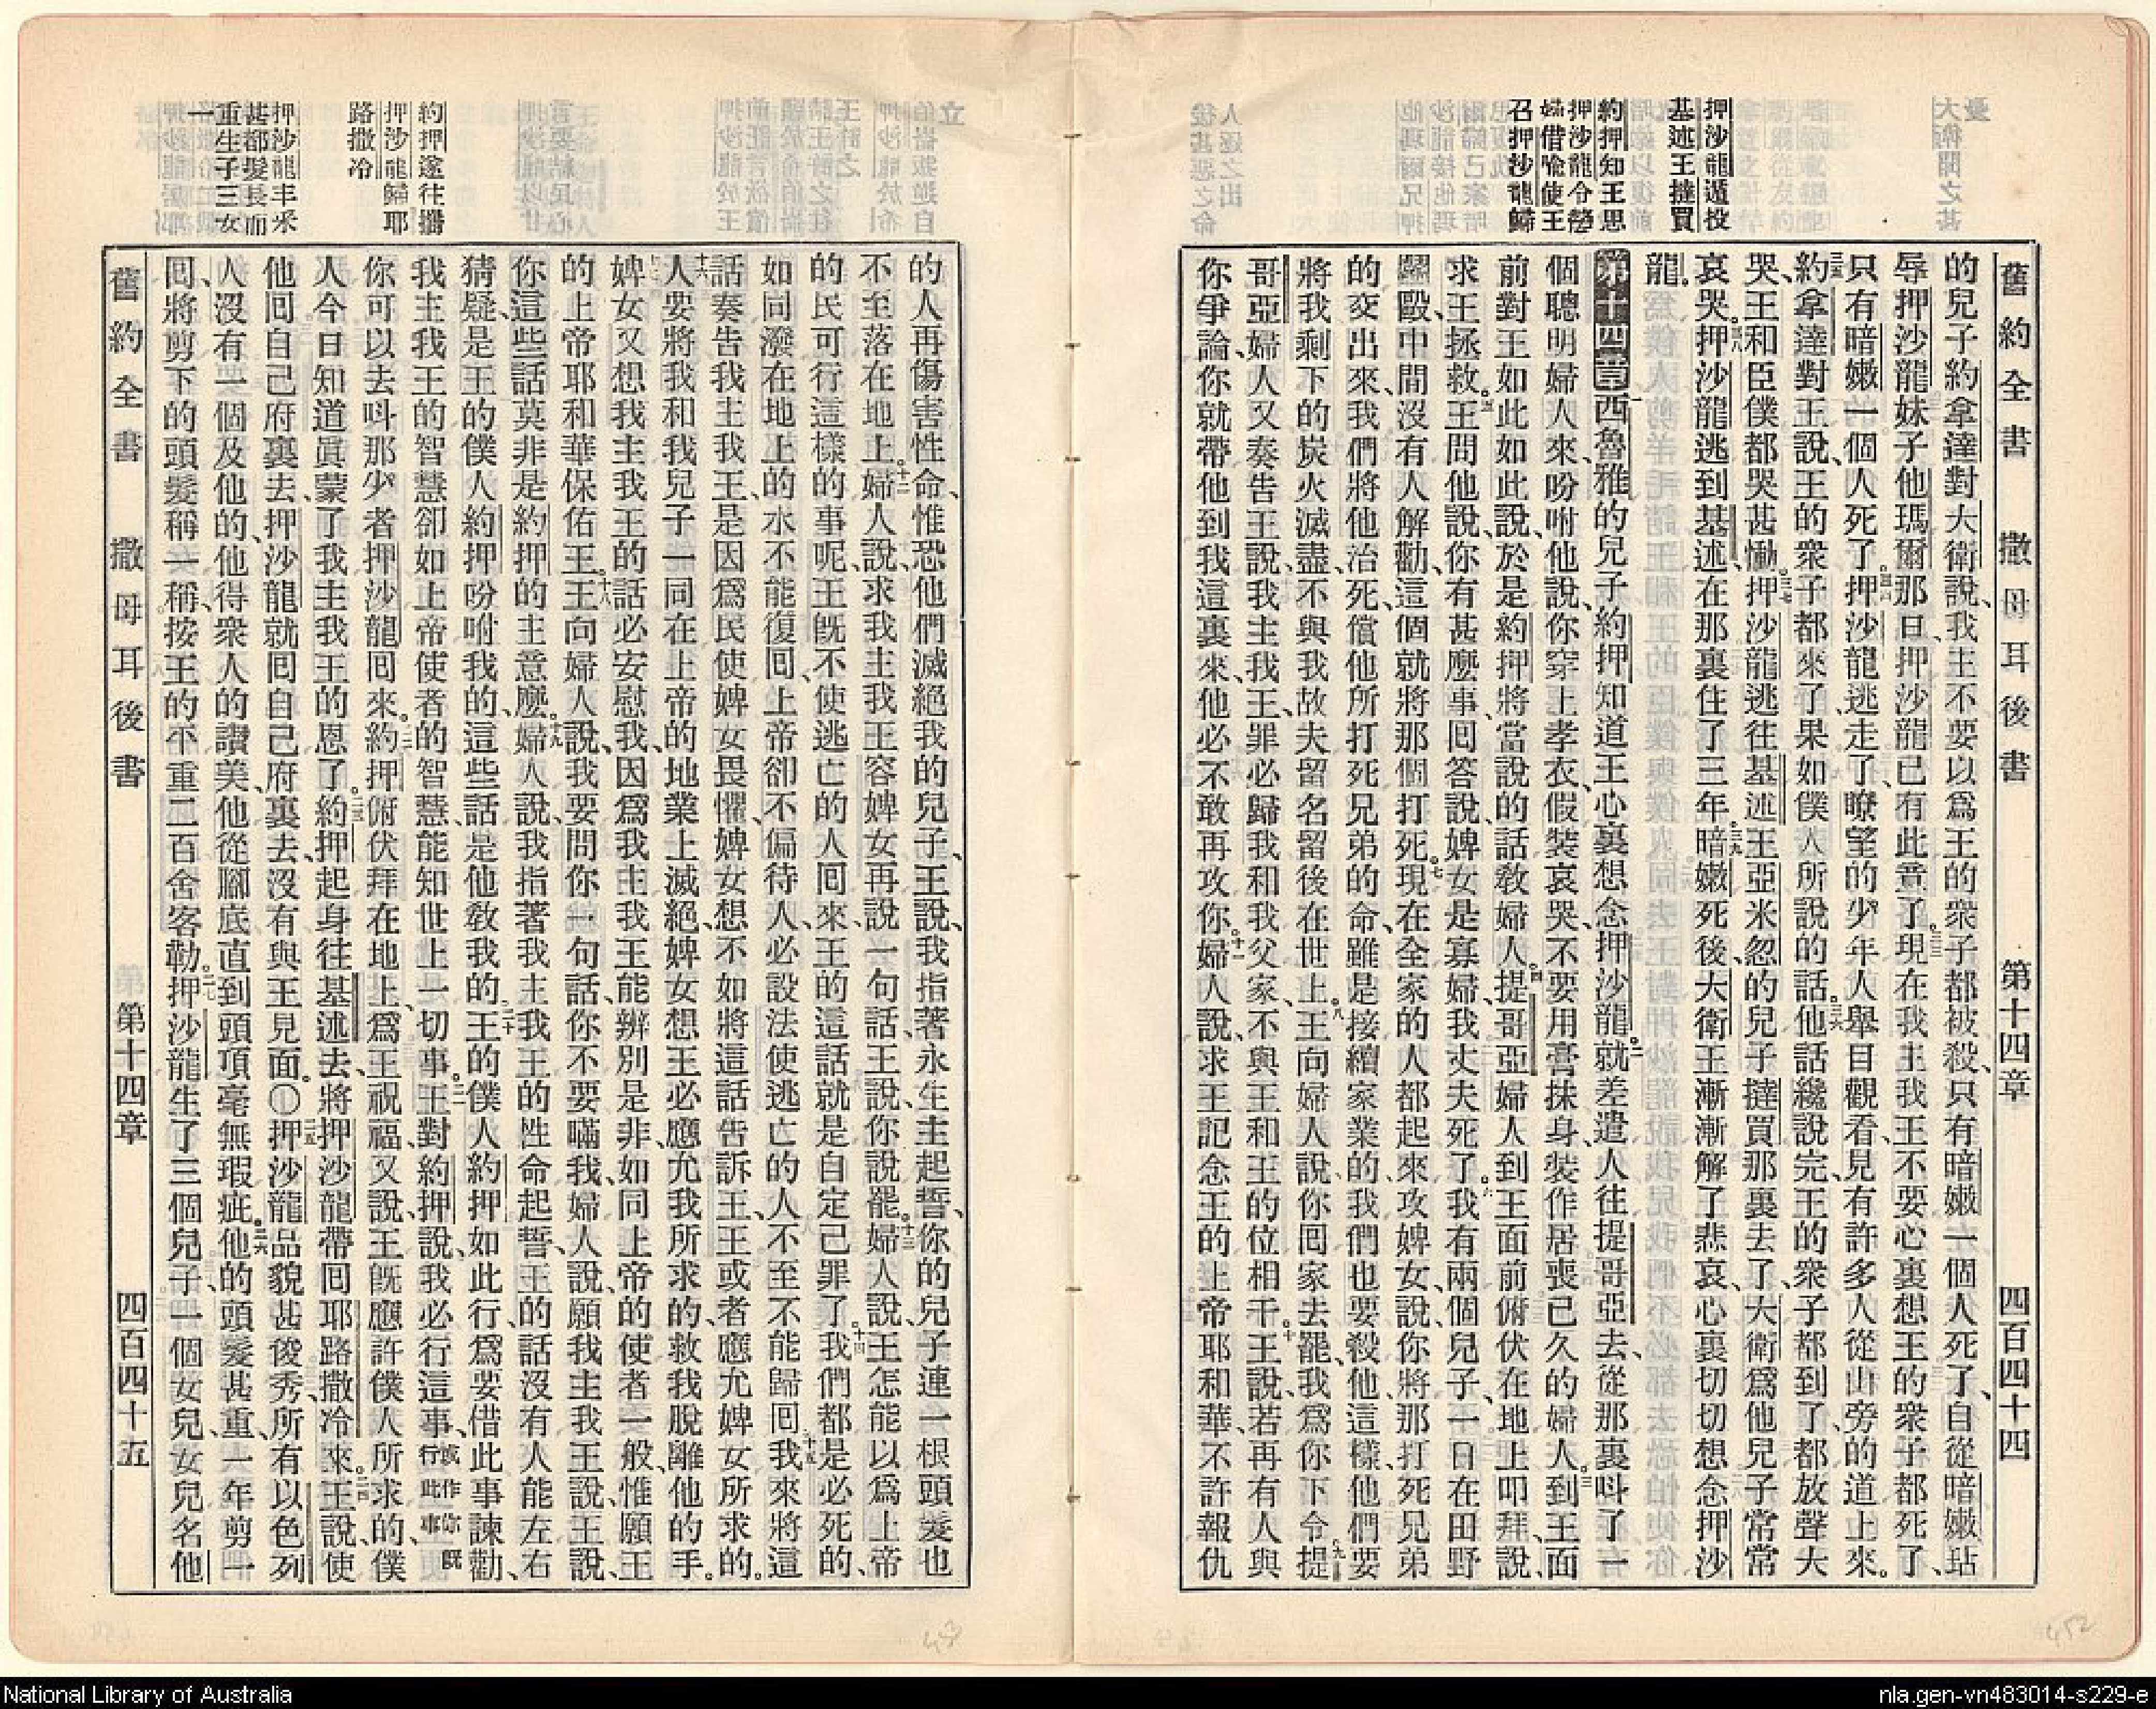 舊約全書 撒母耳後書 第十四章 四百四十四
押沙龍遁投
基述王撻買
約押知王思
押沙龍令嫠
婦借喩使王
召押沙龍歸
的兒子約拿達對大衛說、我主不要以爲王的衆子都被殺、只有暗嫩一個人死了、自從暗嫩玷
辱押沙龍妹子他瑪爾那日、押沙龍已有此意了。三三現在我主我王不要心裏想王的衆子都死了、
只有暗嫩一個人死了。三四押沙龍逃走了、瞭望的少年人舉目觀看、見有許多人從山旁的道上來。
三五約拿達對王說、王的衆子都來了、果如僕人所說的話。三六他話纔說完、王的衆子都到了、都放聲大
哭、王和臣僕都哭甚慟。三七押沙龍逃往基述王亞米忽的兒子撻買那裏去了、大衛爲他兒子常常
哀哭。三八押沙龍逃到基述、在那裏住了三年。三九暗嫩死後、大衛王漸漸解了悲哀、心裏切切想念押沙
龍。
第十四章 西魯雅的兒子約押、知道王心裏想念押沙龍。二就差遣人往提哥亞去、從那裏呌了一
個聰明婦人來、吩咐他說、你穿上孝衣、假裝哀哭、不要用膏抹身、裝作居喪已久的婦人。三到王面
前對王如此如此說、於是約押將當說的話敎婦人。四提哥亞婦人到王面前、俯伏在地上叩拜、說、
求王拯救。五王問他說、你有甚麼事、囘答說、婢女是寡婦、我丈夫死了。六我有兩個兒子、一日在田野
鬬毆、中間沒有人解勸、這個就將那個打死。七現在全家的人都起來攻婢女、說、你將那打死兄弟
的交出來、我們將他治死、償他所打死兄弟的命、雖是接續家業的、我們也要殺他、這樣他們要
將我剩下的炭火滅盡、不與我故夫留名留後在世上。八王向婦人說、你囘家去罷、我爲你下令。九提
哥亞婦人又奏告王說、我主我王、罪必歸我和我父家、不與王和王的位相干。十王說、若再有人與
你爭論、你就帶他到我這裏來、他必不敢再攻你。十一婦人說、求王記念王的上帝耶和華、不許報仇
約押遂往攜
押沙龍歸耶
路撒冷
押沙龍丰采
甚都髮長而
重生子三女
一
的人再傷害性命、惟恐他們滅絕我的兒子、王說、我指著永生主起誓、你的兒子連一根頭髮也
不至落在地上。十二婦人說、求我主我王容婢女再說一句話、王說、你說罷。十三婦人說、王怎能以爲上帝
的民可行這樣的事呢、王旣不使逃亡的人囘來、王的這話就是自定己罪了。十四我們都是必死的、
如同潑在地上的水、不能復囘、上帝卻不偏待人、必設法使逃亡的人不至不能歸囘。十五我來將這
話奏告我主我王、是因爲民使婢女畏懼、婢女想不如將這話告訴王、王或者應允婢女所求的。
十六人要將我和我兒子一同在上帝的地業上滅絕、婢女想王必應允我所求的、救我脫離他的手。
十七婢女又想我主我王的話必安慰我、因爲我主我王能辨別是非、如同上帝的使者一般、惟願王
的上帝耶和華保佑王。十八王向婦人說、我要問你一句話、你不要瞞我、婦人說、願我主我王說、王說、
你這些話莫非是約押的主意麼。十九婦人說、我指著我主我王的性命起誓、王的話沒有人能左右
猜疑、是王的僕人約押吩咐我的、這些話是他敎我的。二十王的僕人約押如此行、爲要借此事諫勸、
我主我王的智慧卻如上帝使者的智慧、能知世上一切事。二一王對約押說、我必行這事、或作你旣行此事
你可以去呌那少者押沙龍囘來。二二約押俯伏拜在地上、爲王祝福、又說、王旣應許僕人所求的、僕
人今日知道眞蒙了我主我王的恩了。二三約押起身往基述去、將押沙龍帶囘耶路撒冷來。二四王說、使
他囘自己府裏去、押沙龍就囘自己府裏去、沒有與王見面。〇二五押沙龍品貌甚俊秀、所有以色列
人沒有一個及他的、他得衆人的讚美、他從腳底直到頭頂毫無瑕疵。二六他的頭髮甚重、一年剪一
囘、將剪下的頭髮稱一稱、按王的平重二百舍客勒。二七押沙龍生了三個兒子、一個女兒、女兒名他
舊約全書 撒母耳後書 第十四章 四百四十五
452
453
National Library of Australia
nla.gen-vn483014-s229-e